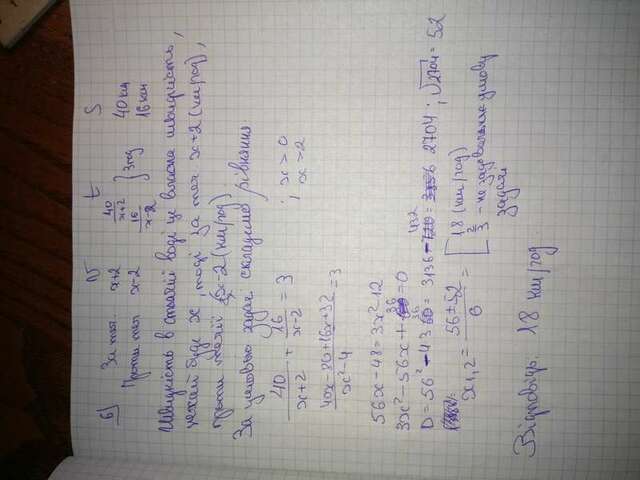 V t S
6) За теч. x+2 40/x+2 } 3 год 40 км
Проти теч x-2 16/x-2 16 км
Швидкість в стоячій воді це власна швидкість,
нехай буде x, тоді за теч. x+2 (км/год),
проти течії x-2 (км/год)
За умовою задач складемо рівняння
40/x+2 + 16/x-2 = 3 ; x>0
x>2
40x-80+16x+32/x²-4 = 3
56x-48=3x²-12
3x²-56x+36=0
D=56²-4·3·36=3136-432=2704; √2704=52
x₁,₂=56±52/6=[18 (км/год)
2/3 - не задовольняє умову
задачі
Відповідь. 18 км/год